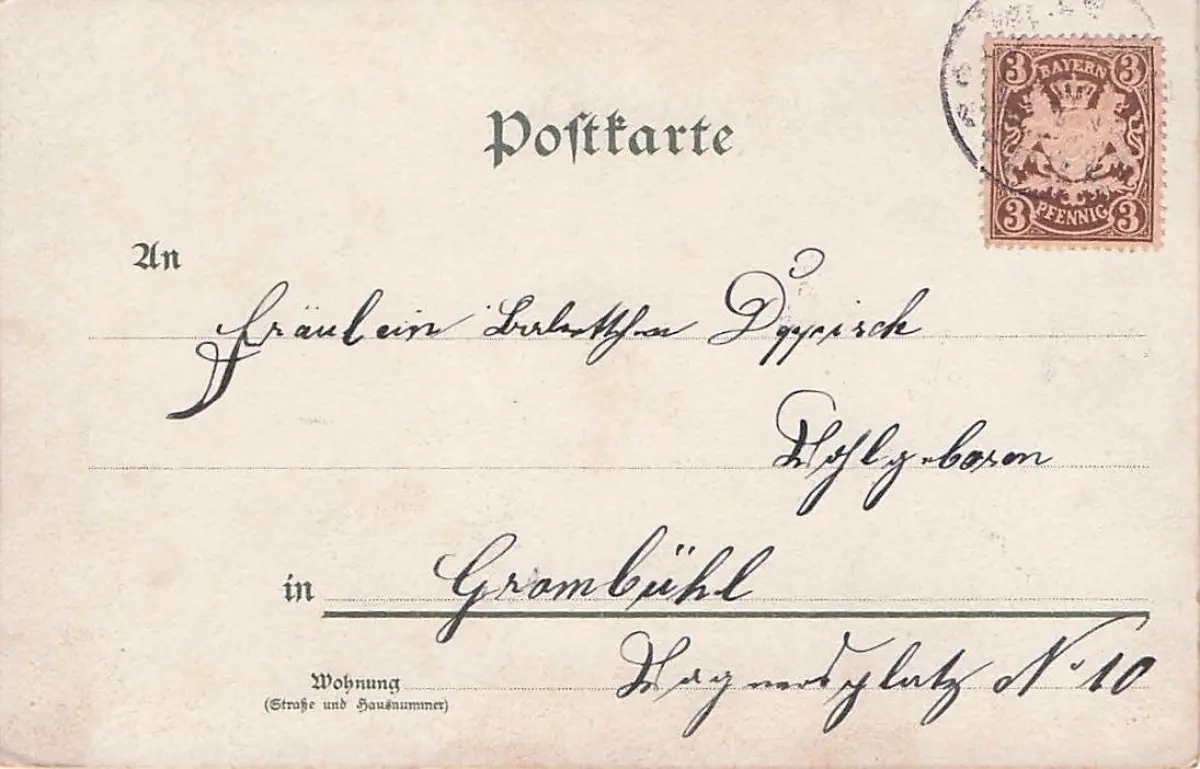 3 BAYERN 3
3 PFENNIG 3
Poſtkarte
An
Fräulein Babettchen
Wohlgeboren
in Grombühl
Wohnung Wagnersplatz No 10
(Straße und Hausnummer)